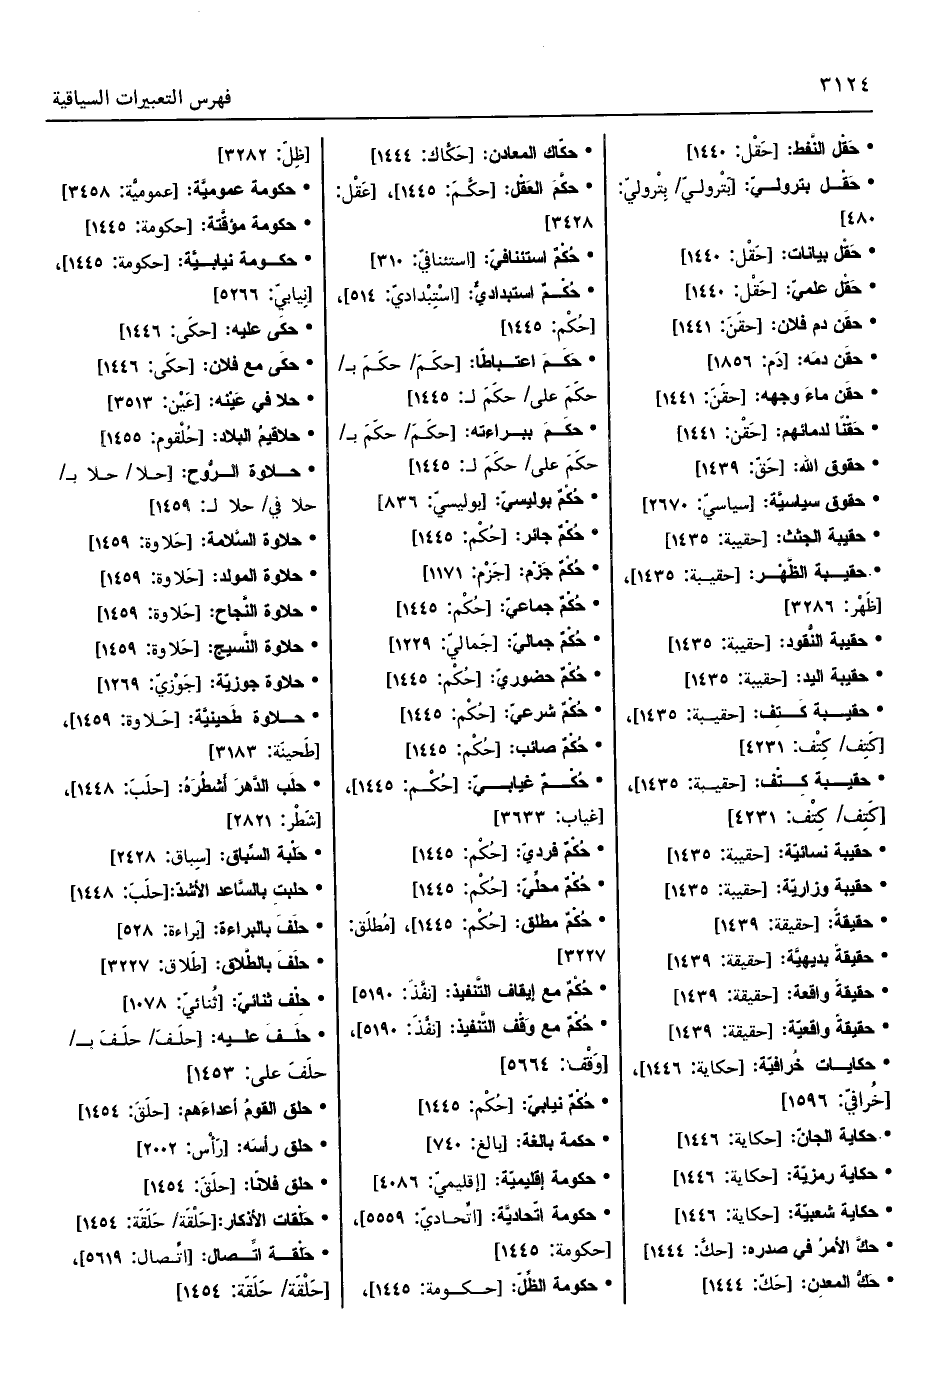 ٣١٢٤
فهرس التعبيرات السياقية
• حَقْل النَّفط: [حَقْل: ١٤٤٠]
• حَقْـل بتروليّ: [بَتْروليّ/ بِتْروليّ:
٤٨٠]
• حَقْل بيانات: [حَقْل: ١٤٤٠]
• حَقْل علميّ: [حَقْل: ١٤٤٠]
• حقَن دم فلان: [حقَنَ: ١٤٤١]
• حقَن دمَه: [دَم: ١٨٥٦]
• حقَن ماءَ وجهه: [حقَنَ: ١٤٤١]
• حَقْنًا لدمائهم: [حَقْن: ١٤٤١]
• حقوق الله: [حَقّ: ١٤٣٩]
• حقوق سياسيَّة: [سياسيّ: ٢٦٧٠]
• حقيبة الجثث: [حقيبة: ١٤٣٥]
• حقيبـة الظَّهْـر: [حقيبـة: ١٤٣٥]،
[ظَهْر: ٣٢٨٦]
• حقيبة النُّقود: [حقيبة: ١٤٣٥]
• حقيبة اليد: [حقيبة: ١٤٣٥]
• حقيـبـة كَـتِـف: [حقيبـة: ١٤٣٥]،
[كَتِف/ كِتْف: ٤٢٣١]
• حقيبـة كِـتْـف: [حقيبـة: ١٤٣٥]،
[كَتِف/ كِتْف: ٤٢٣١]
• حقيبة نسائيّة: [حقيبة: ١٤٣٥]
• حقيبة وزاريّة: [حقيبة: ١٤٣٥]
• حقيقةً: [حقيقة: ١٤٣٩]
• حقيقةٌ بديهيَّة: [حقيقة: ١٤٣٩]
• حقيقةٌ واقعة: [حقيقة: ١٤٣٩]
• حقيقةٌ واقعيّة: [حقيقة: ١٤٣٩]
• حكايـات خُرافيّة: [حكاية: ١٤٤٦]،
[خُرافيّ: ١٥٩٦]
• حكاية الجانّ: [حكاية: ١٤٤٦]
• حكاية رمزيّة: [حكاية: ١٤٤٦]
• حكاية شعبيّة: [حكاية: ١٤٤٦]
• حكَّ الأمرُ في صدره: [حكَّ: ١٤٤٤]
• حَكُّ المعدن: [حَكّ: ١٤٤٤]
• حكّاك المعادن: [حَكَّاك: ١٤٤٤]
• حكَّمَ العَقْلَ: [حكَّـمَ: ١٤٤٥]، [عَقْل:
٣٤٢٨]
• حُكْمٌ استئنافيّ: [استئنافيّ: ٣١٠]
• حُكْـمٌ استبداديٌّ: [اسْتِبْداديّ: ٥١٤]،
[حُكْم: ١٤٤٥]
• حكَـمَ اعتـباطًا: [حكَـمَ/ حكَـمَ بـ/
حكَمَ على/ حكَمَ لـ: ١٤٤٥]
• حكَـمَ بـبـراءته: [حكَـمَ/ حكَمَ بـ/
حكَمَ على/ حكَمَ لـ: ١٤٤٥]
• حُكْمٌ بوليسيّ: [بوليسيّ: ٨٣٦]
• حُكْمٌ جائر: [حُكْم: ١٤٤٥]
• حُكْمٌ جَزْم: [جَزْم: ١١٧١]
• حُكْمٌ جماعيّ: [حُكْم: ١٤٤٥]
• حُكْمٌ جماليّ: [جَماليّ: ١٢٢٩]
• حُكْمٌ حضوريّ: [حُكْم: ١٤٤٥]
• حُكْمٌ شرعيّ: [حُكْم: ١٤٤٥]
• حُكْمٌ صائب: [حُكْم: ١٤٤٥]
• حُكْـمٌ غيابـيّ: [حُكْـم: ١٤٤٥]،
[غياب: ٣٦٣٣]
• حُكْمٌ فرديّ: [حُكْم: ١٤٤٥]
• حُكْمٌ محلّيّ: [حُكْم: ١٤٤٥]
• حُكْمٌ مطلق: [حُكْم: ١٤٤٥]، [مُطلَق:
٣٢٢٧]
• حُكْمٌ مع إيقاف التَّنفيذ: [نفَّذَ: ٥١٩٠]
• حُكْمٌ مع وَقْف التَّنفيذ: [نفَّذَ: ٥١٩٠]،
[وَقْف: ٥٦٦٤]
• حُكْمٌ نيابيّ: [حُكْم: ١٤٤٥]
• حكمة بالغة: [بالغ: ٧٤٠]
• حكومة إقليميّة: [إقليميّ: ٤٠٨٦]
• حكومة اتّحاديَّة: [اتّحاديّ: ٥٥٥٩]،
[حكومة: ١٤٤٥]
• حكومة الظِّلّ: [حـكـومة: ١٤٤٥]،
[ظِلّ: ٣٢٨٢]
• حكومة عموميَّة: [عموميَّة: ٣٤٥٨]
• حكومة مؤقَّتة: [حكومة: ١٤٤٥]
• حكـومة نيابـيَّة: [حكومة: ١٤٤٥]،
[نِيابيّ: ٥٢٦٦]
• حكَى عليه: [حكَى: ١٤٤٦]
• حكَى مع فلان: [حكَى: ١٤٤٦]
• حلا في عَيْنه: [عَيْن: ٣٥١٣]
• حلاقيمُ البلاد: [حُلْقوم: ١٤٥٥]
• حـلاوة الـرُّوح: [حـلا/ حـلا بـ/
حلا في/ حلا لـ: ١٤٥٩]
• حلاوة السَّلامة: [حَلاوة: ١٤٥٩]
• حلاوة المولد: [حَلاوة: ١٤٥٩]
• حلاوة النَّجاح: [حَلاوة: ١٤٥٩]
• حلاوة النَّسيج: [حَلاوة: ١٤٥٩]
• حلاوة جوزيّة: [جَوْزيّ: ١٢٦٩]
• حـلاوة طَحينيَّة: [حَـلاوة: ١٤٥٩]،
[طَحينَة: ٣١٨٣]
• حلَب الدَّهرَ أشطُرَهُ: [حلَبَ: ١٤٤٨]،
[شَطْر: ٢٨٢١]
• حَلْبة السِّباق: [سِباق: ٢٤٢٨]
• حلبت بالسَّاعد الأشدّ:[حلَبَ: ١٤٤٨]
• حلَفَ بالبراءة: [بَراءة: ٥٢٨]
• حلَفَ بالطَّلاق: [طَلاق: ٣٢٢٧]
• حلْف ثنائيّ: [ثُنائيّ: ١٠٧٨]
• حلَـفَ علـيه: [حلَـفَ/ حلَـفَ بـ/
حلَفَ على: ١٤٥٣]
• حلق القومُ أعداءَهم: [حلَقَ: ١٤٥٤]
• حلق رأسَه: [رَأْس: ٢٠٠٢]
• حلق فلانًا: [حلَقَ: ١٤٥٤]
• حَلَقات الأذكار:[حَلْقَة/ حَلَقَة: ١٤٥٤]
• حَلْقـة اتّـصال: [اتّـصال: ٥٦١٩]،
[حَلْقَة/ حَلَقَة: ١٤٥٤]